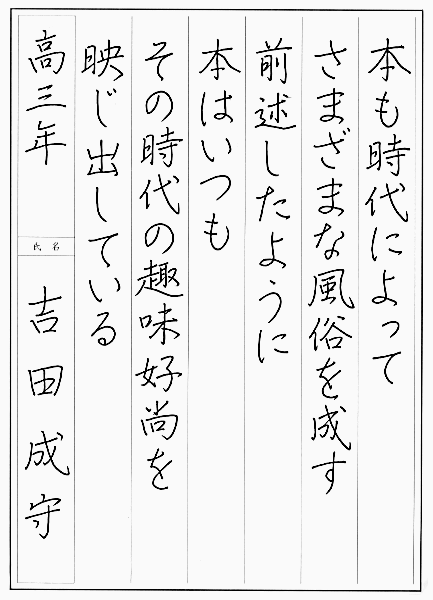 本も時代によって
さまざまな風俗を成す
前述したように
本はいつも
その時代の趣味好尚を
映じ出している
高三年
氏名
吉田成守